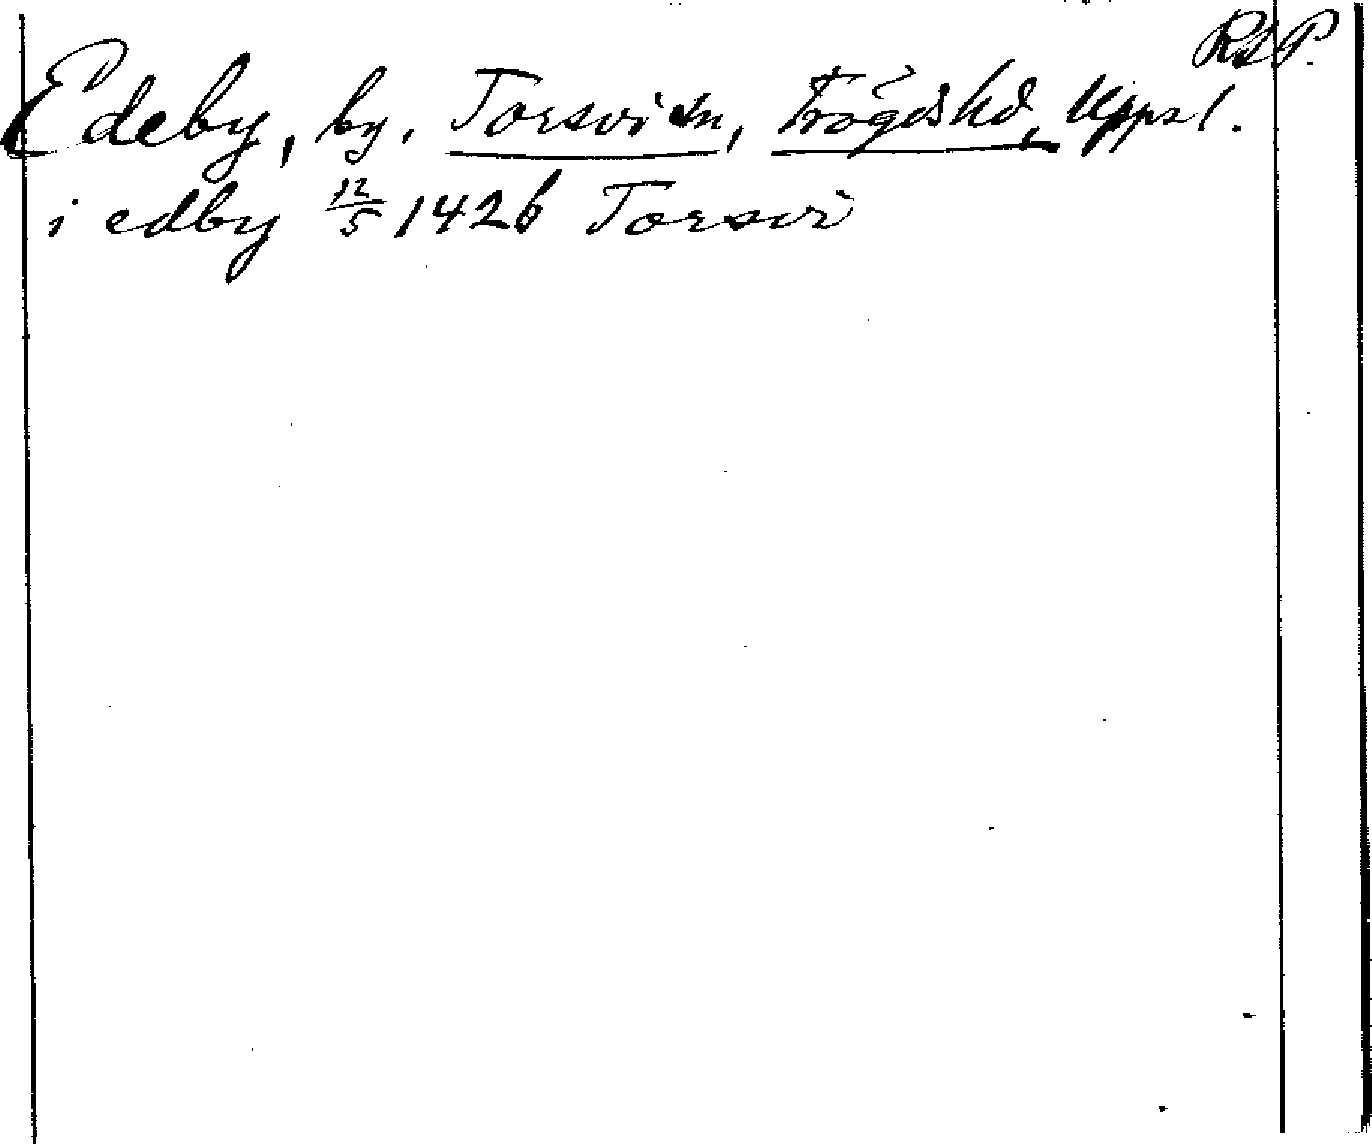 RAP.
Edeby, by, Torsvi sn, Trögds hd, Uppsl.
i edby 12/5 1426 Torsvi